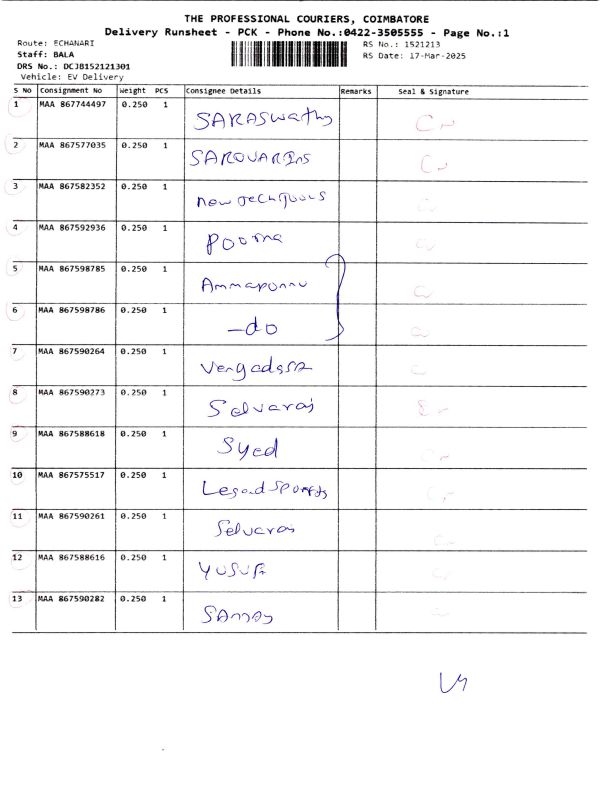 THE PROFESSIONAL COURIERS, COIMBATORE
Delivery Runsheet - PCK - Phone No.:0422-3505555 - Page No.:1
Route: ECHANARI
Staff: BALA
DRS No.: DCJB152121301
Vehicle: EV Delivery
RS No.: 1521213
RS Date: 17-Mar-2025
S No Consignment No Weight PCS Consignee Details Remarks Seal & Signature
1 MAA 867744497 0.250 1 SARASwathy
2 MAA 867577035 0.250 1
3 MAA 867582352 0.250 1 new
4 MAA 867592936 0.250 1
5 MAA 867598785 0.250 1 Ammaponnu
6 MAA 867598786 0.250 1 -do
7 MAA 867590264 0.250 1
8 MAA 867590273 0.250 1 Selvaraj
9 MAA 867588618 0.250 1 Syed
10 MAA 867575517 0.250 1
11 MAA 867590261 0.250 1 Selvaraj
12 MAA 867588616 0.250 1 YUSUF
13 MAA 867590282 0.250 1